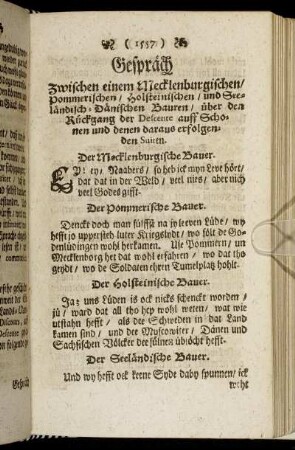 ( 1537 )
Gespräch
Zwischen einem Mecklenburgischen/
Pommerischen/ Holsteinischen/ und See-
ländisch-Dänischen Bauren/ über den
Rückgang der Descente auff Scho-
nen und denen daraus erfolgen-
den Suiten.
Der Mecklenburgische Bauer.
ey/ Naabers/ so heb ick myn Levt hört/
dat dat in der Weld/ veel nies/ aber nich
veel Godes gifft.
Der Pommerische Bauer.
Denckt doch man sülffst na jy leeven Lüde/ wy
hefft jo upperstedt luter Kriegslyde/ wo sölt de Go-
denlüdingen wohl herkamen. Use Pommern/ un
Mecklenborg het dat wohl erfahren/ wo dat tho
geydt/ wo de Soldaten ehren Tumelplatz hohlt.
Der Holsteinische Bauer.
Ja; uns Lüden is ock nicks schenckt worden/
jü/ ward dat all tho hey wohl weten/ wat wie
utstahn hefft/ als die Schweden in dat Land
kamen sind/ und der Muscowiter/ Dänen und
Sachsischen Völcker der sülven
Der Seeländische Bauer.
Und wy hefft ock keene Syde daby spunnen/ ick
weht